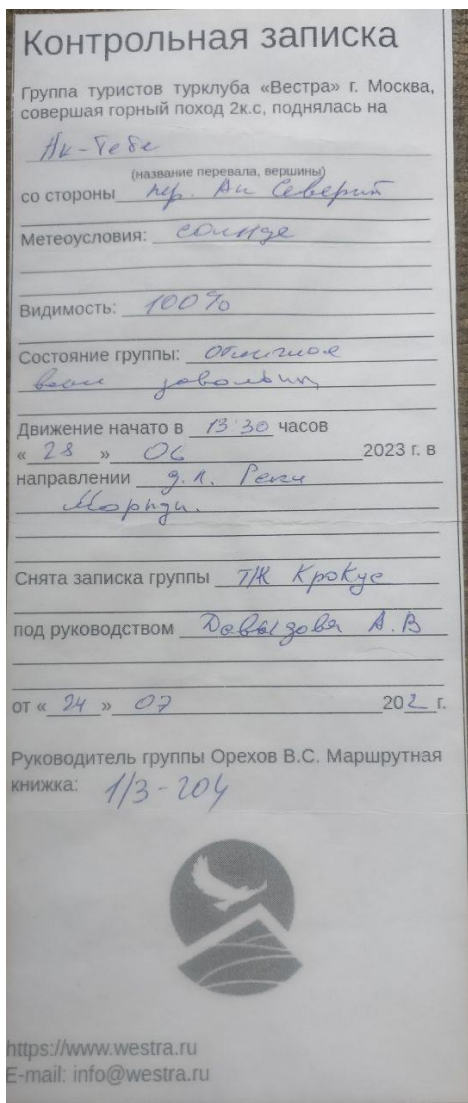 Контрольная записка
Группа туристов турклуба «Вестра» г. Москва,
совершая горный поход 2к.с, поднялась на
Ак-Тебе
(название перевала, вершины)
со стороны пер. Ак Северит
Метеоусловия: солнце
Видимость: 100%
Состояние группы: отличное
все довольны
Движение начато в 13:30 часов
«28» 06 2023 г. в
направлении д.л. Реки
Снята записка группы Т/К Крокус
под руководством Давыдова А.В
от «24» 07 202 г.
Руководитель группы Орехов В.С. Маршрутная
книжка: 1/3-204
https://www.westra.ru
E-mail: info@westra.ru